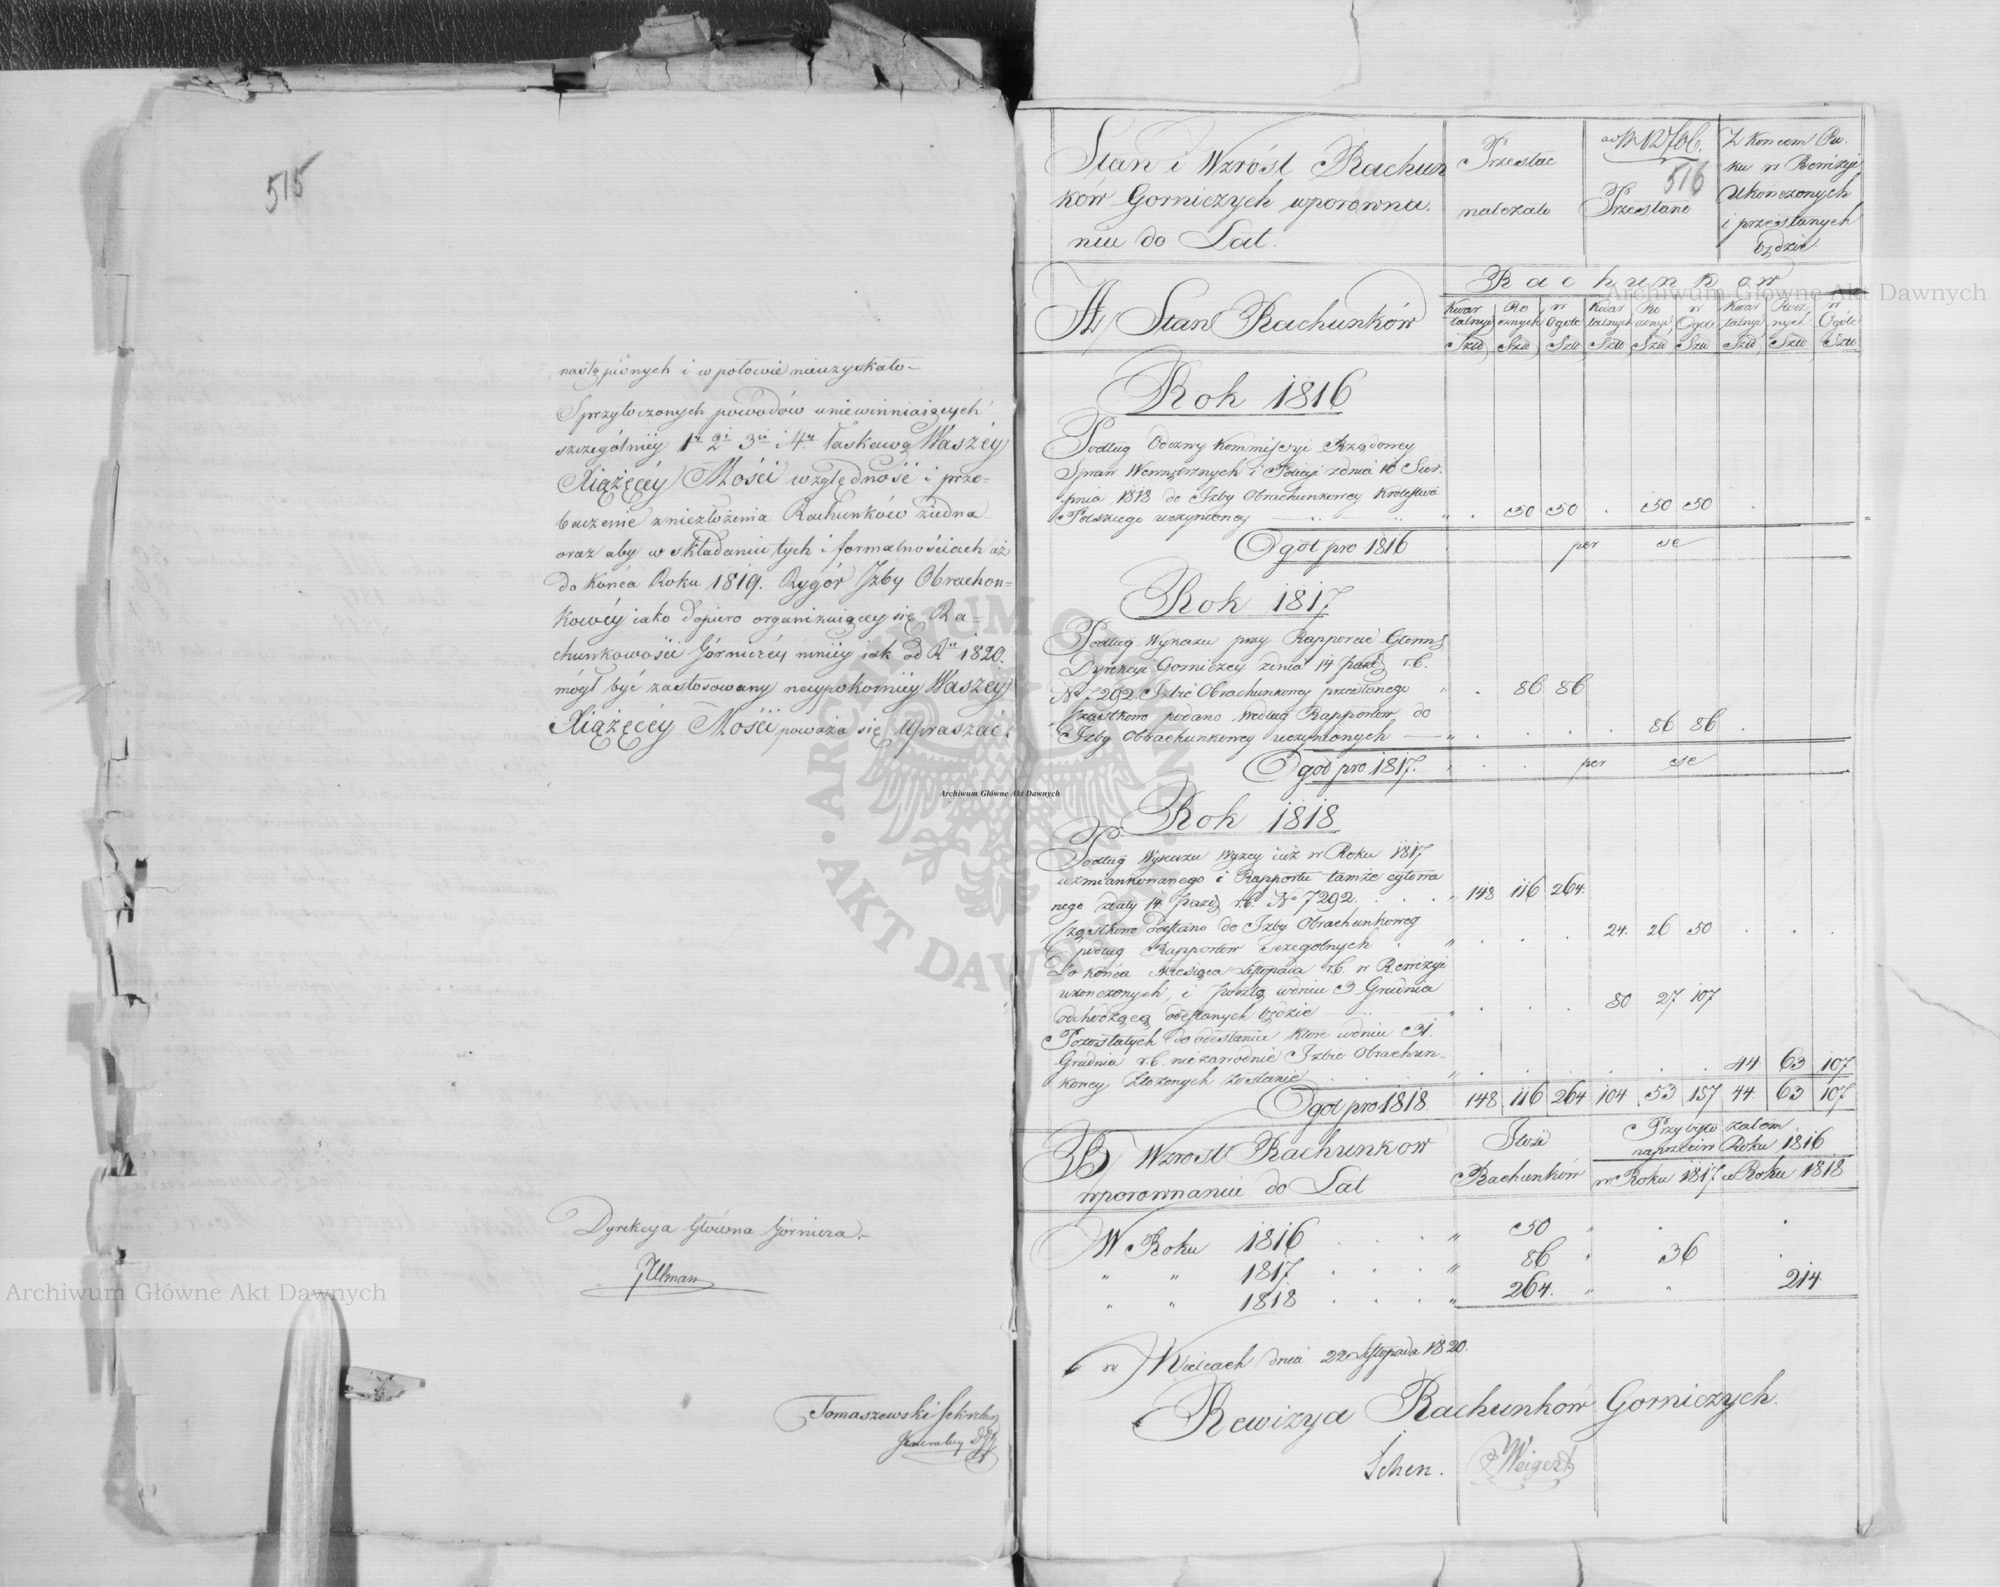 515
nastąpionych i w połowie nieuzyskało —
Z przytoczonych powodów uniewinniaiących
szczególniey 1o 2i 3ii i 4o łaskawą Waszéy
Xiążęcéy Mości względność i prze=
baczenie z niezłożenia Rachunków ziedna
oraz aby w składaniu tych i formalnościach aż
do końca Roku 1819. Rygór Izby Obrachon=
kowéy iako dopiero organizuiącéy się Ra=
chunkowości Górniczéy mniéy iak od Ru 1820.
mógł być zastosowany naypokorniéy Waszéy
Xiążęcéy Mości poważa się upraszać.
Dyrekcya Główna Górnicza.—
Ullman
Tomaszewski Sekretarz
Jeneralny
ad N 12706.
516
Stan i Wzróst Rachun
ków Gorniczych w porówna.
niu do Lat.
Przesłac
należało
Przesłano
Z Końcem Ro.
ku w Rewizyi
Ukończonych
i przesłanych
będzie.
Rachunkow
A/ Stan Rachunków
Kwar Ro w Kwar Ro w Kwar Rocz. w
talnych cznych Ogóle talnych cznych Ogóle talnych nych Ogóle
Sztu Sztu Sztu Sztu Sztu Sztu Sztu Sztu Sztu
Rok 1816
Podług Odezwy Kommissyi Rządowey
Spraw Wewnętrznych i Policyi z dnia 10 Sier.
pnia 1818 do Izby Obrachunkowey Królestwa
Polskiego uczynioney " . 50 50 . 50 50 .
Ogół pro 1816 per se
Rok 1817
Podług Wykazu przy Rapporcie Główney
Dyrekcyi Gorniczey z dnia 14 Paźd r.b.
No 7292. Izbie Obrachunkowey przesłanego " . 86 86
Cząstkowo podano według Rapportow do
Izby Obrachunkowey uczynionych — " . . . . 86 86 .
Ogół pro 1817. per se
Rok 1818
Podług Wykazu wyżey już w Roku 1817
wzmiankowanego i Rapportu tamże cytowa
nego z daty 14 Paźd r.b. No 7292. . . . " 148 116 264.
Cząstkowo odesłano do Izby Obrachunkowey
podług Rapportów szczegolnych . " . . . 24. 26 50 . . .
Do końca Miesiąca Listopada r.b. w Rewizyi
ukończonych, i pocztą w dniu 3 Grudnia
odchodzącą odesłanych będzie — " . . . 80 27 107
Pozostałych do odesłania które w dniu 31.
Grudnia r.b. niezawodnie Izbie Obrachun..
kowey złożonych zostanie . . . " . . . . . . 44 63 107
Ogół pro 1818. 148 116 264 104 53 157 44. 63 107
B/ Wzrost Rachunkow
w porownaniu do Lat
Ilość
Rachunków
Przybyło zatem
naprzeciw Roku 1816
w Roku 1817 w Roku 1818
W Roku 1816 . . . " 50 " . .
" " 1817 . . . " 86 " 36 .
" " 1818 . . . " 264. " " 214
w Kielcach dnia 22 Listopada 1820.
Rewizya Rachunkow Gorniczych.
Schen. Weigert
Archiwum Główne Akt Dawnych
Archiwum Główne Akt Dawnych
Archiwum Główne Akt Dawnych
ARCHIWUM GŁÓWNE · AKT DAWNYCH ·